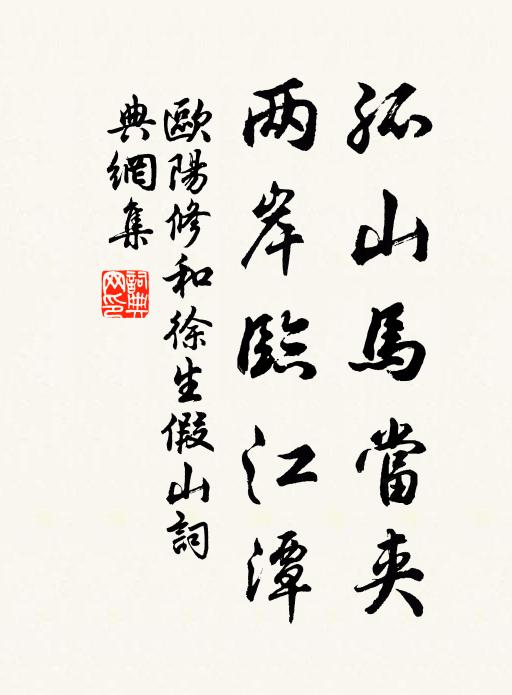 孤山馬當夾
两岸臨江潭
歐陽修和徐生假山詞
典網集
詞典
网印